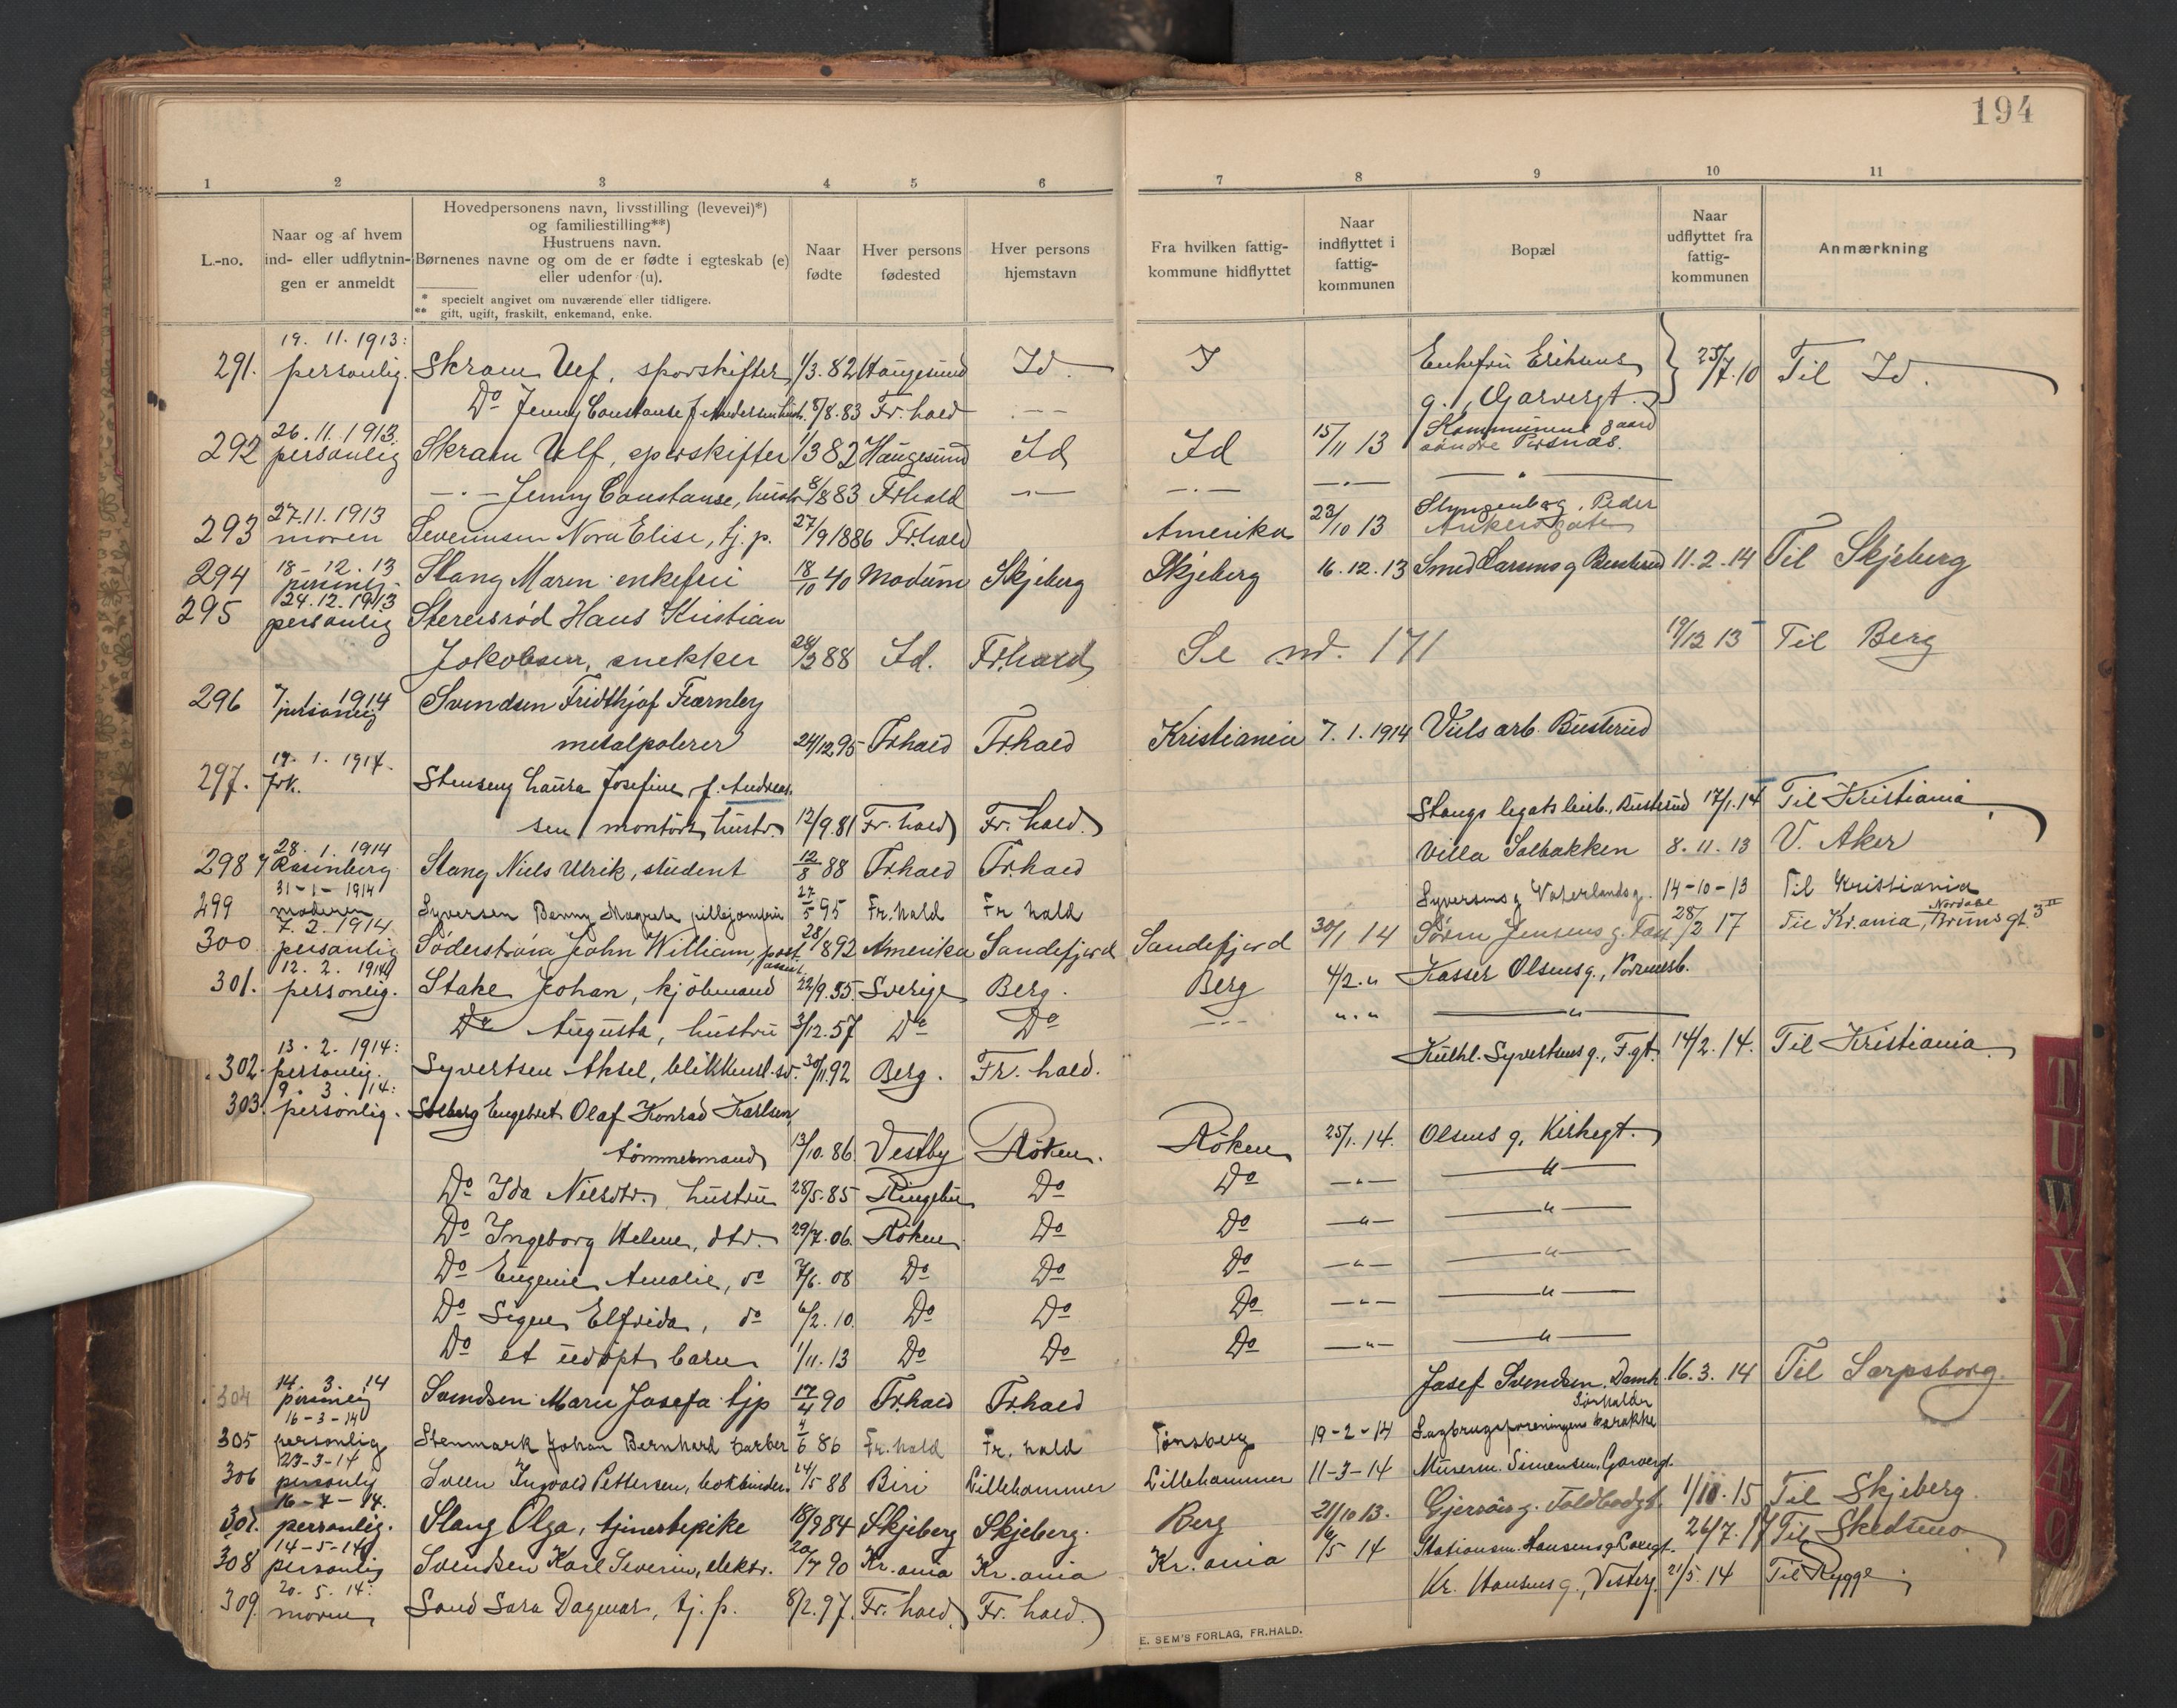 194
1 2 3 4 5 6 7 8 9 10 11
L.-no.
Naar og af hvem
ind- eller udflytnin-
gen er anmeldt
Hovedpersonens navn, livsstilling (levevei)*)
og familiestilling**)
Hustruens navn.
Børnenes navne og om de er fødte i egteskab (e)
eller udenfor (u).
* specielt angivet om nuværende eller tidligere.
** gift, ugift, fraskilt, enkemand, enke.
Naar
fødte
Hver persons
fødested
Hver persons
hjemstavn
Fra hvilken fattig-
kommune hidflyttet
Naar
indflyttet i
fattig-
kommunen
Bopæl
Naar
udflyttet fra
fattig-
kommunen
Anmærkning
19. 11. 1913:
291. personlig. Skram Ulf, sporskifter 1/3. 82 Haugesund Id. Enkefru Eriksens 25/7. 10 Til Id.
Do Jenny Constanse f. Andersen hustr. 8/8. 83 Fr.hald -"- g., Garvergt.
26. 11. 1913.
292 personlig Skram Ulf, sporskifter 1/3 82 Haugesund Id Id 15/11 13 Kommunens gaard
søndre
-"- Jenny Constanse, hustr 8/8 83 Frhald -"- -"- -"- -"-
27.11. 1913
293 moren Nora Elise, tj. p. 27/9 1886 Fr.hald Amerika 23/10 13 Peder
Ankersgate
18-12. 13
294 personlig. Stang Maren enkefru 18/10 40 Modum Skjeberg Skjeberg 16. 12. 13 Smed Larsens g Busterud 11. 2. 14 Til Skjeberg
24.12. 1913
295 personlig Hans Kristian
Jakobsen, snekker 28/3 88 Id. Fr.hald Se no. 171 19/12 13 Til Berg
296 7/1 1914 Svendsen Fridthjof Fearnley
personlig metalpolerer 24/12 95 Frhald Fr.hald Kristiania 7. 1. 1914 arb. Busterud
19. 1. 1914.
297. Stenseng Laura Josefine, f. Andreas.
sen montørs hustr. 12/9. 81 Fr. hald Fr. hald. Stangs legats Busterud 17/1. 14 Til Kristiania
28. 1. 1914
298 Rosenberg Stang Niels Ulrik, student 12/8 88 Fr.hald Fr.hald Villa Solbakken 8. 11. 13 V. Aker
31-1-1914
299 moderen Syversen Benny Magrete 27/5 95 Fr. hald Fr hald Syversens g Vaterlandsg. 14-10-13 Til Kristiania
7. 2. 1914
300 personlig Söderström John William, post. 28/1 892 Amerika Sandefjord Sandefjord 30/1 14 Sörен Jensens g. 28/2 17 Til Kr.ania, Nordahl Brunsgt 3 II
assist.
12. 2. 1914
301. personlig. Stake Johan, kjøbmand 22/9. 55. Sverige Berg. Berg 4/2. " Kasser Olsens g.,
Do Augusta, hustru 3/12. 57 Do Do -"- "." -"-
13. 2. 1914:
302. personlig. Syvertsen Aksel, blikkensl. sv. 30/11. 92 Berg. Fr. hald. Syvertsens g., F.gt. 14/2. 14. Til Kristiania.
9. 3. /14:
303. personlig. Solberg Engebret Olaf Konrad Karlsen,
tømmermand 13/10. 86. Vestby Røken. Røken 25/1. 14. Olsens g, Kirkegt.
Do Ida Nielsdtr. hustru 28/5. 85 Ringebu Do Do -"- -"-
Do Ingeborg Helene, dtr. 29/7. 06. Røken Do Do -"- -"-
Do Eugenie Amalie, do 7/6. 08 Do Do Do -"- -"-
Do Signe Elfrida, do 6/2. 10. Do Do Do -"- -"-
Do et udøpt barn 1/11. 13 Do Do Do -"- -"-
14. 3. 14
304 personlig Svendsen Marie Josefa tjp 17/4 90 Fr.hald Fr.hald Josef Svendsen, Damh. 16. 3. 14 Til Sarpsborg.
16-3-14
305 personlig Stenmark Johan Bernhard barber 86 Fr. hald Fr. hald Tønsberg 19-2-14 Sagbrugsforeningens barakke
23-3-14
306 personlig Sveen Ingvald Pettersen, bokbinder. 24/5 88 Biri Lillehammer Lillehammer 11-3-14 Murerm. Simensen, Garvergt.
16-4-14.
307. personlig. Stang Olga, tjenestepike 18/9 84 Skjeberg Skjeberg. Berg 21/10 13. g. Toldbodgt. 1/10. 15 Til Skjeberg.
14-5-14
308 personlig Svendsen Karl Severin, elektr. 20/7 90 Kr.ania Kr.ania Kr.ania 6/5 14 Stationsm. Hansens g 26/7. 17 Til Skedsmo
20. 5. 14.
309. moren Sand Sara Dagmar, tj. p. 8/2. 97. Fr. hald Fr. hald. Kr. Hansens g., Vesterg. 21/5. 14 Til Rygge.
E. SEM'S FORLAG, FR.HALD.
T
U
W
X
Y
Z
Æ
Ø